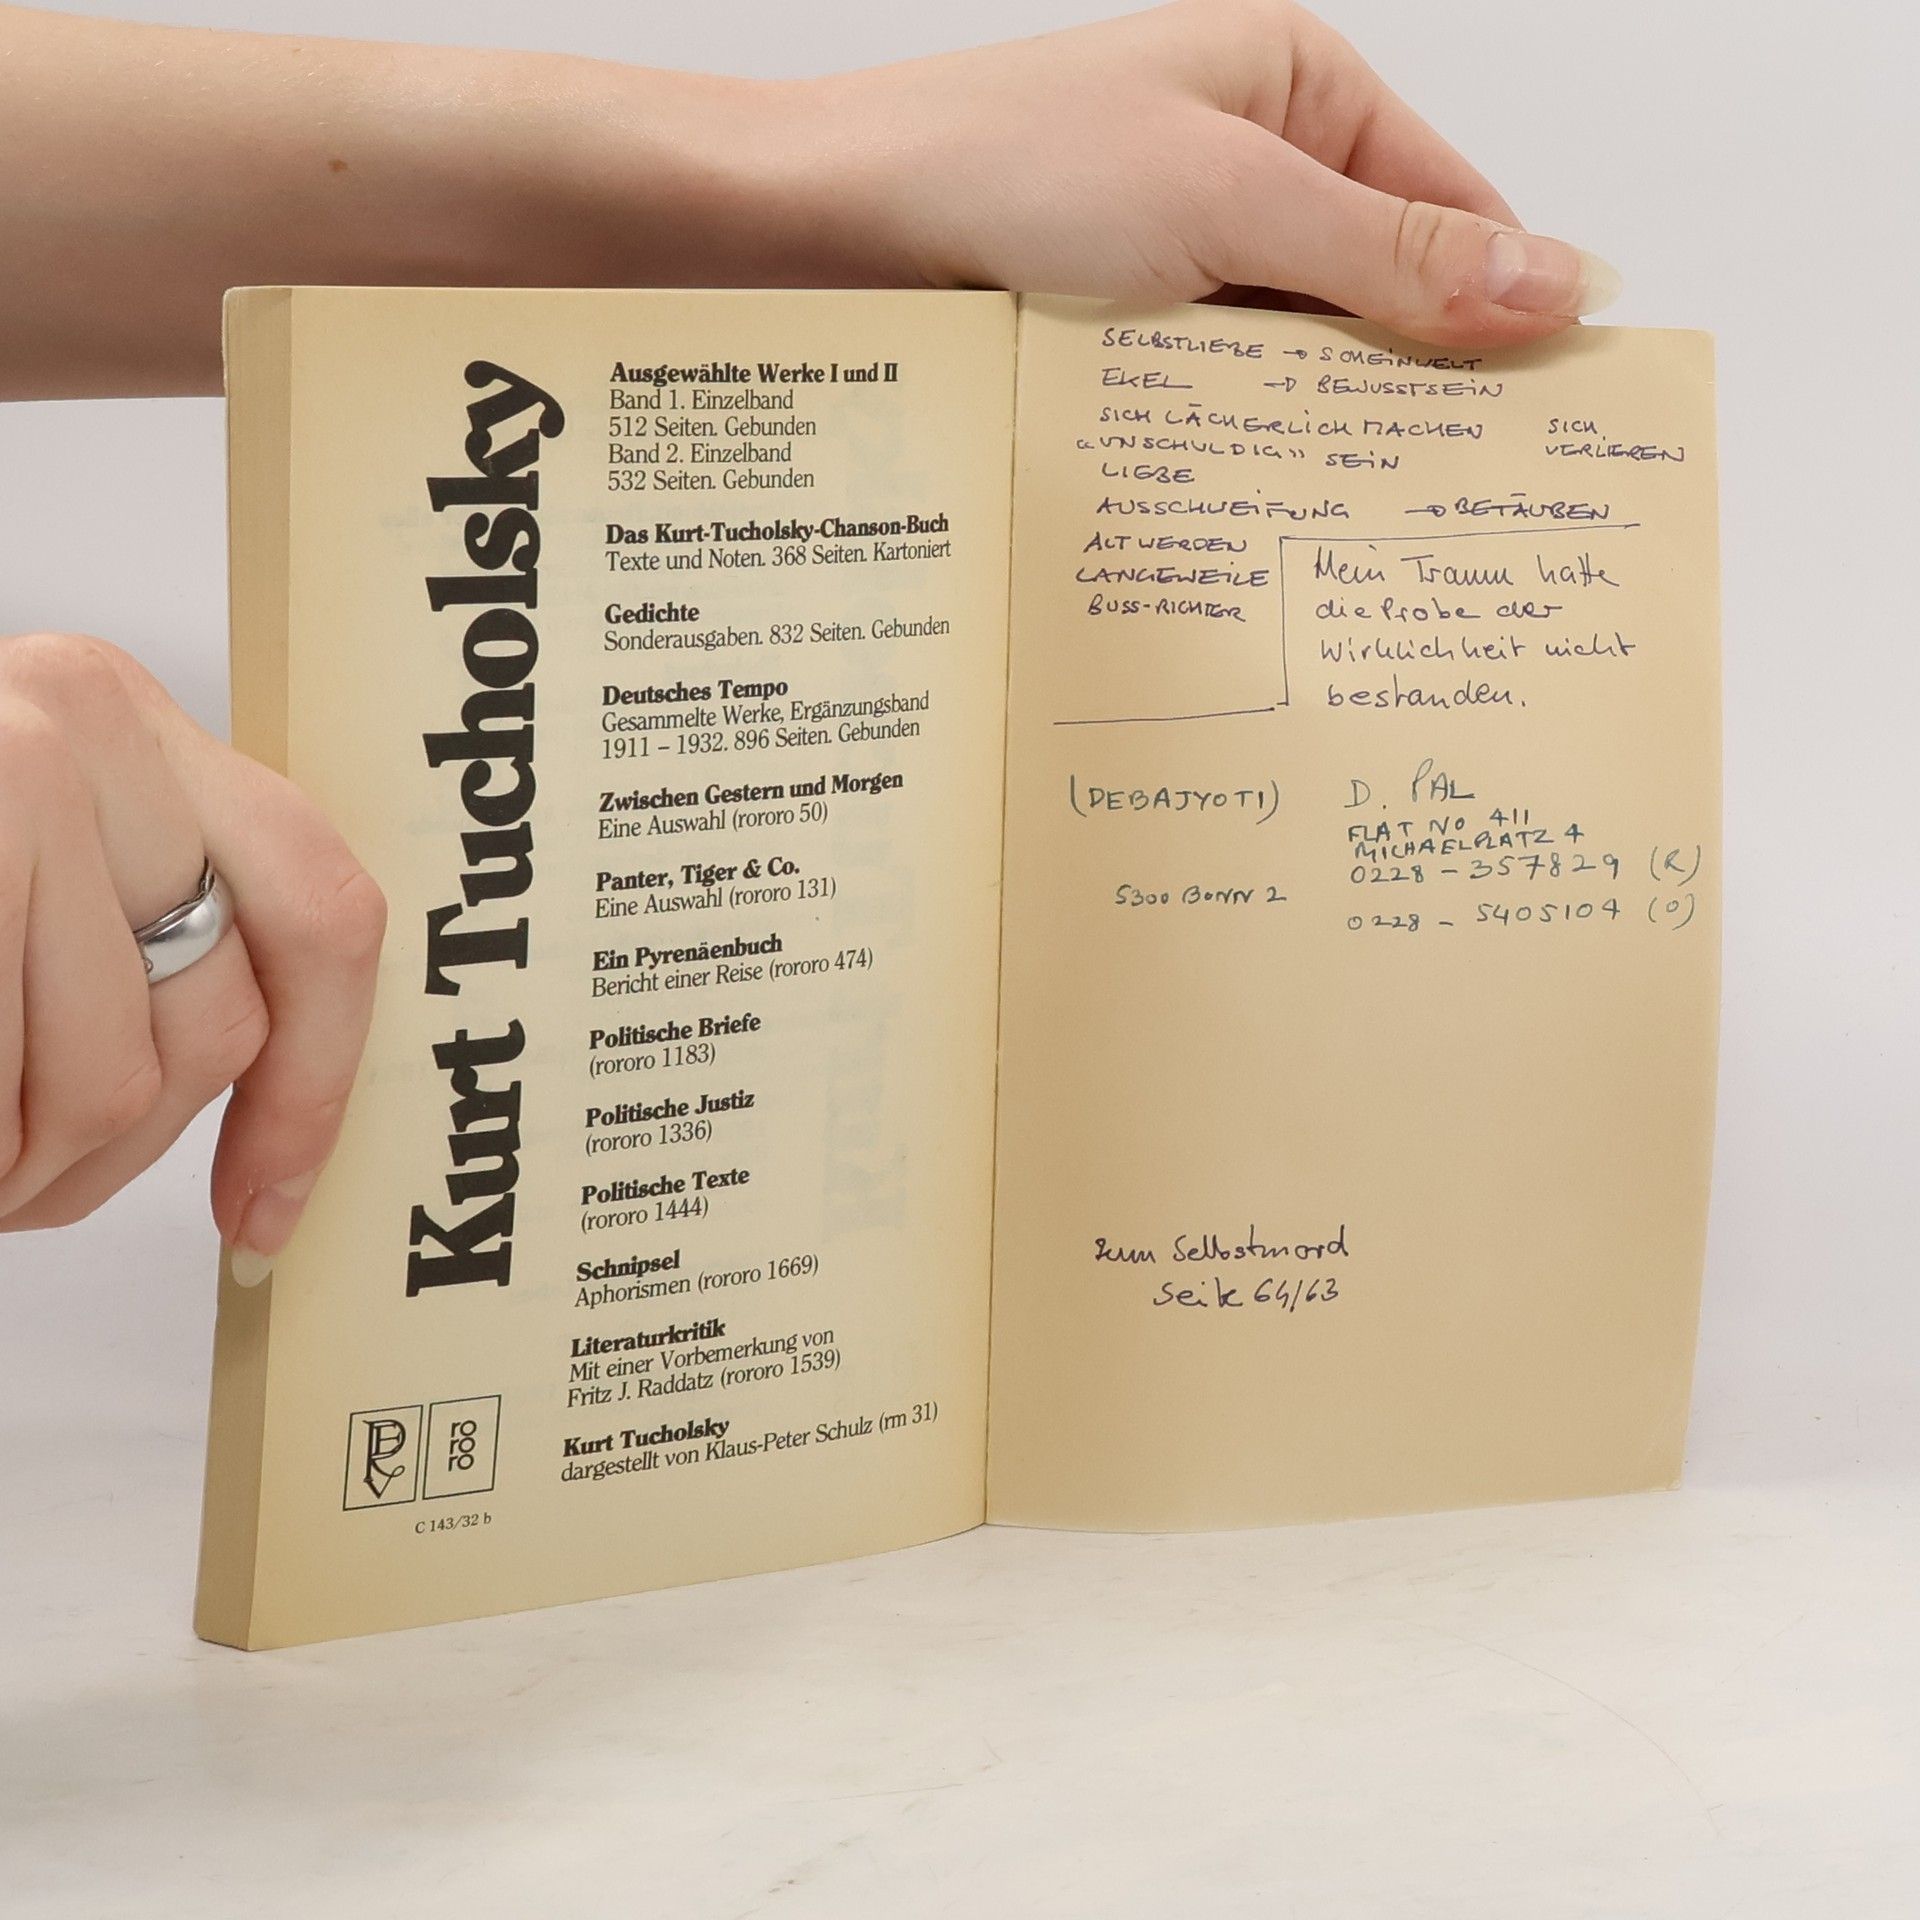 Kurt Tucholsky
Ausgewählte Werke I und II
Band 1. Einzelband
512 Seiten. Gebunden
Band 2. Einzelband
532 Seiten. Gebunden
Das Kurt-Tucholsky-Chanson-Buch
Texte und Noten. 368 Seiten. Kartoniert
Gedichte
Sonderausgaben. 832 Seiten. Gebunden
Deutsches Tempo
Gesammelte Werke, Ergänzungsband
1911 – 1932. 896 Seiten. Gebunden
Zwischen Gestern und Morgen
Eine Auswahl (rororo 50)
Panter, Tiger & Co.
Eine Auswahl (rororo 131)
Ein Pyrenäenbuch
Bericht einer Reise (rororo 474)
Politische Briefe
(rororo 1183)
Politische Justiz
(rororo 1336)
Politische Texte
(rororo 1444)
Schnipsel
Aphorismen (rororo 1669)
Literaturkritik
Mit einer Vorbemerkung von
Fritz J. Raddatz (rororo 1539)
Kurt Tucholsky
dargestellt von Klaus-Peter Schulz (rm 31)
ro
ro
ro
C 143/32 b
SELBSTLIEBE → SCHEINWELT
EKEL → BEWUSSTSEIN
SICH LÄCHERLICH MACHEN
SICH
VERLIEREN
"UNSCHULDIG" SEIN
LIEBE
AUSSCHWEIFUNG → BETÄUBEN
ALT WERDEN
LANGEWEILE
BUSS-RICHTER
Mein Traum hatte
die Probe der
Wirklichkeit nicht
bestanden.
(DEBAJYOTI) D. PAL
FLAT NO 411
MICHAELPLATZ 4
0228 - 357829 (R)
5300 BONN 2
0228 - 5405104 (O)
zum Selbstmord
Seite 64/63